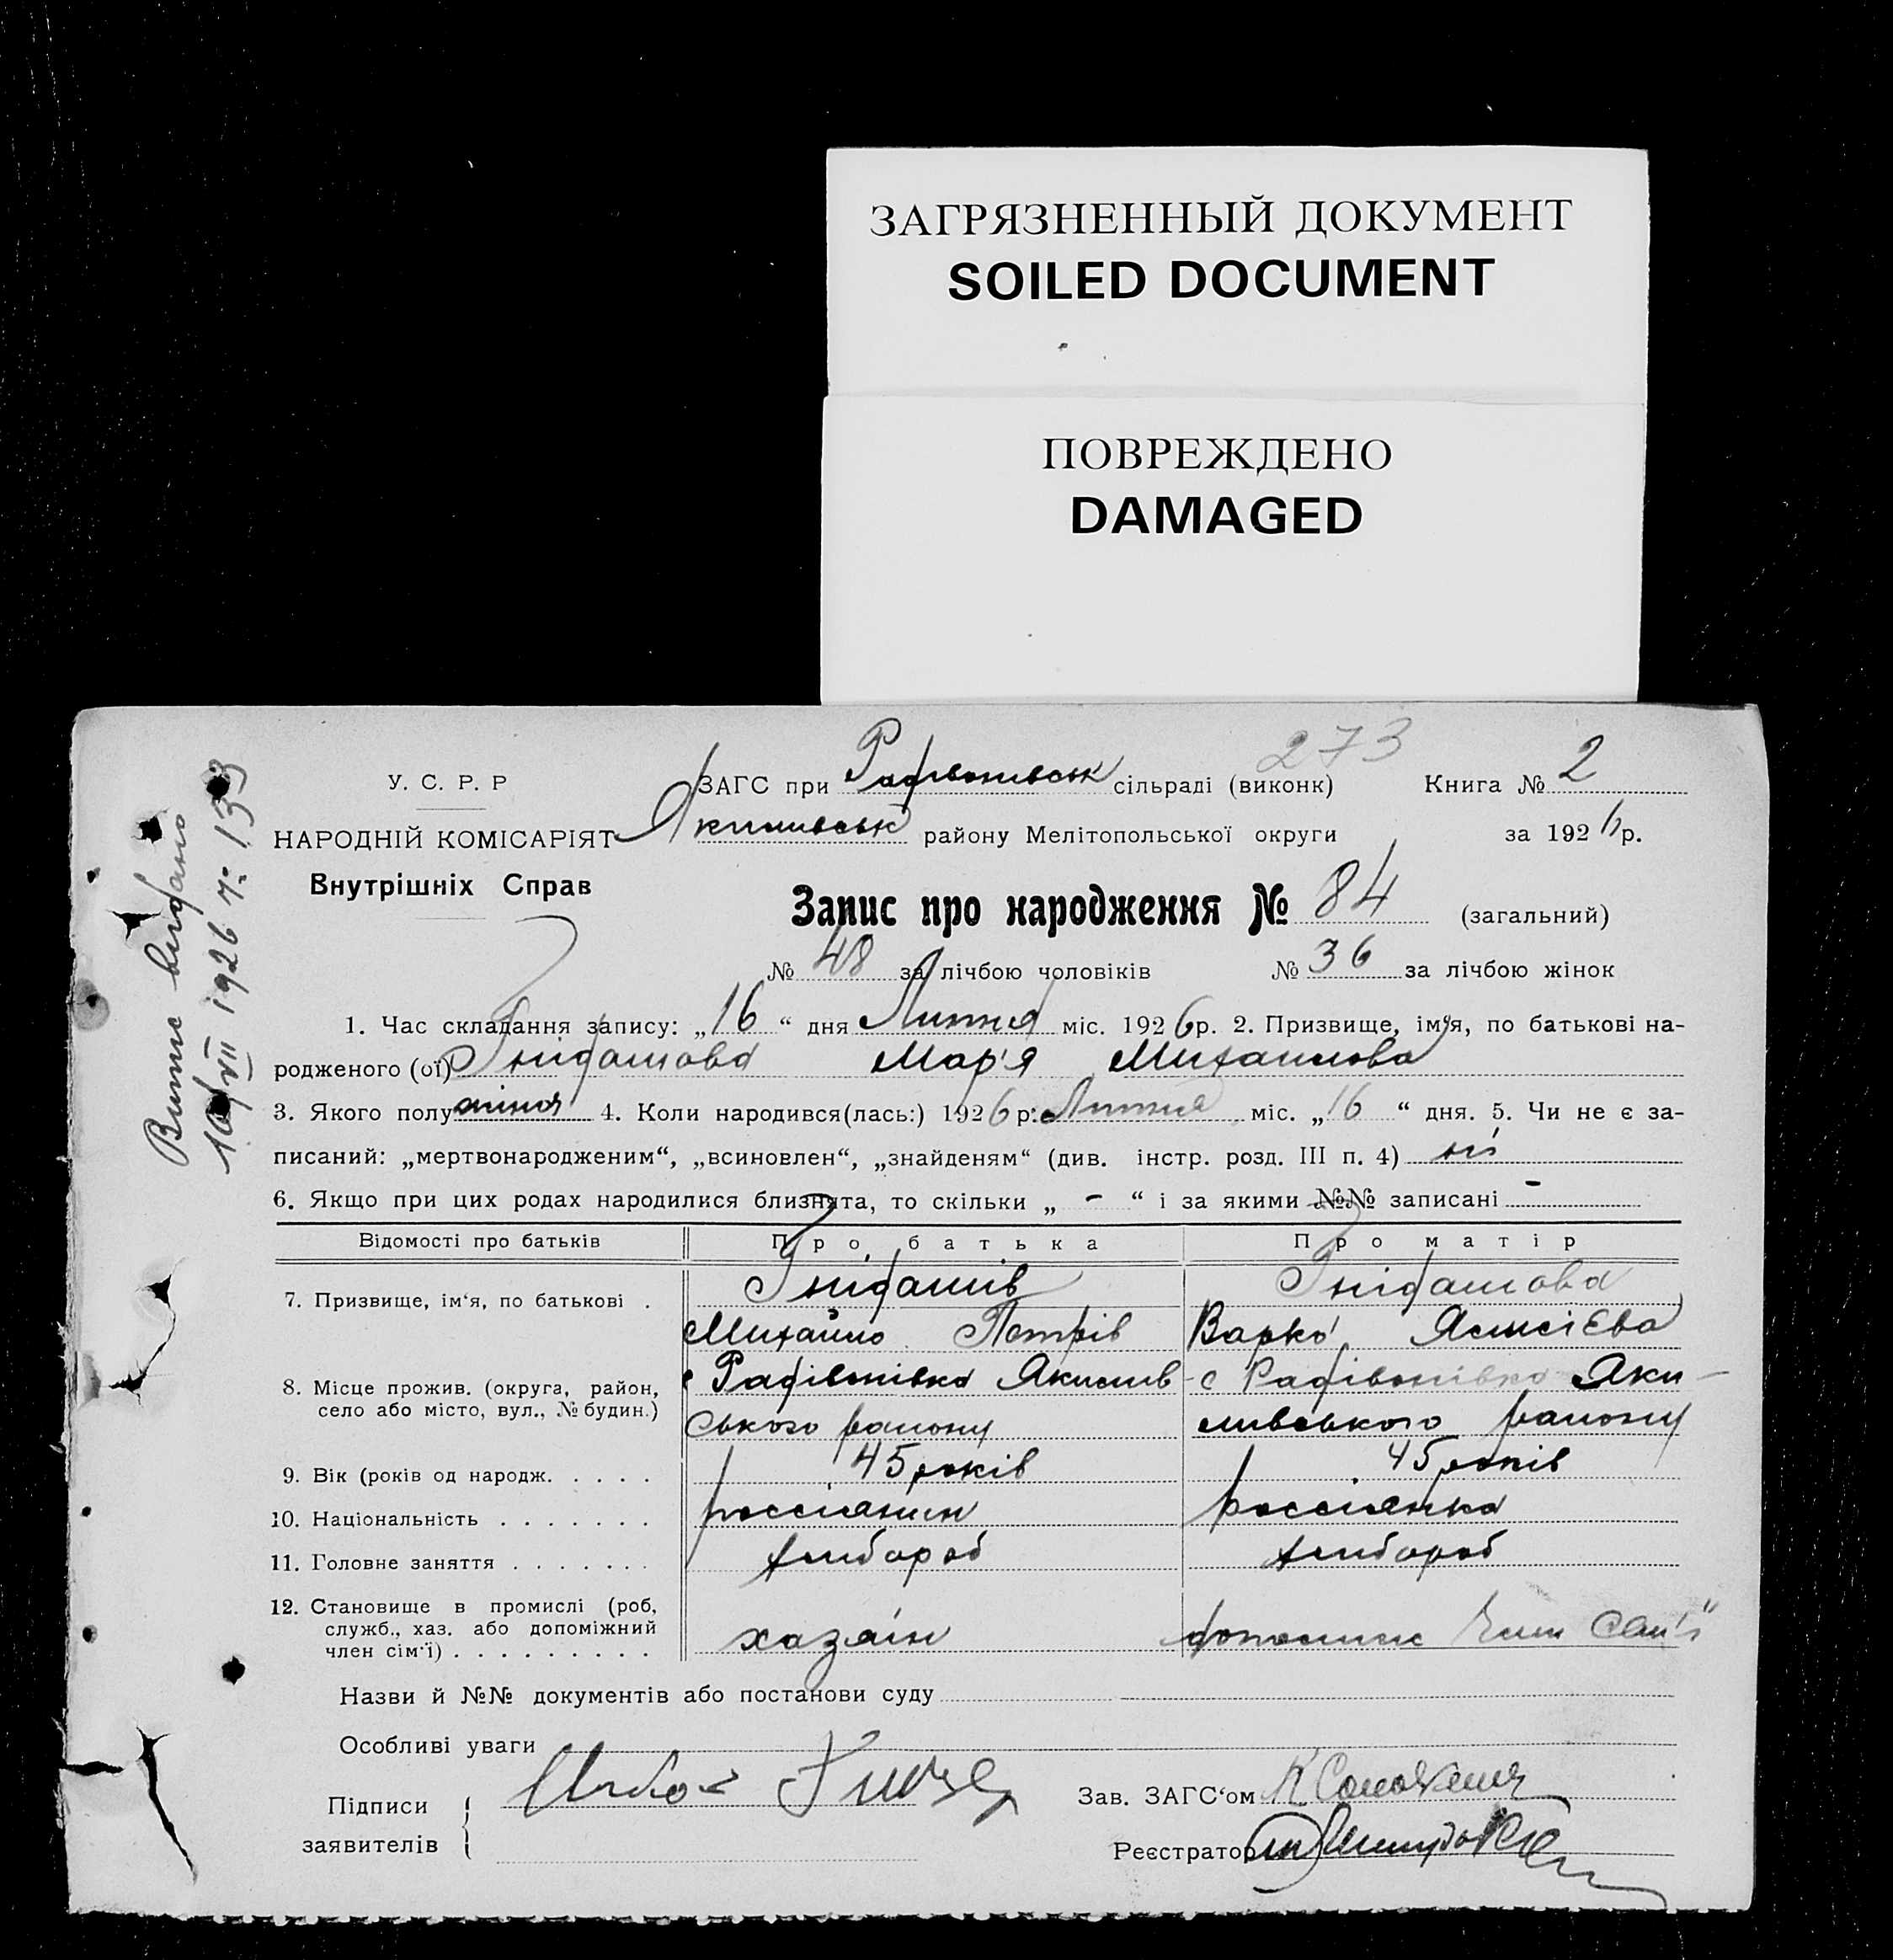 ЗАГРЯЗНЕННЫЙ ДОКУМЕНТ
SOILED DOCUMENT
ПОВРЕЖДЕНО
DAMAGED
273
У. С. Р. Р
ЗАГС при сільраді (виконк) Книга № 2
НАРОДНІЙ КОМІСАРІЯТ Якимивськ району Мелітопольської округи за 1926 р.
Внутрішніх Справ
Запис про народження № 84 (загальний)
№ 48 за лічбою чоловіків № 36 за лічбою жінок
1. Час складання запису: „16“ дня Липня міс. 1926 р. 2. Призвище, ім'я, по батькові на-
родженого (ої) Гнідашова Мар'я Михаилова
3. Якого полу 4. Коли народився(лась:) 1926 р: Липня міс. „16“ дня. 5. Чи не є за-
писаний: „мертвонародженим“, „всиновлен“, „знайденям“ (див. інстр. розд. III п. 4) ні
6. Якщо при цих родах народилися близнята, то скільки „ - “ і за якими №№ записані -
Відомості про батьків Про батька Про матір
7. Призвище, ім‘я, по батькові . Гнідашів Гнідашова
Михайло Петрів Варка
8. Місце прожив. (округа, район, с Якимив- с Яки-
село або місто, вул., № будин.) ського району мивського району
9. Вік (років од народж. . . . . 45 років 45 років
10. Національність . . . . . . . россіянин россіянка
11. Головне заняття . . . . . . . хлібороб хлібороб
12. Становище в промислі (роб,
служб., хаз. або допоміжний
член сім‘ї) . . . . . . . . . хазяін
Назви й №№ документів або постанови суду
Особливі уваги
Підписи
заявителів
Зав. ЗАГС‘ом
Реєстратор
Випис видано
10/VII 1926 ч: 133